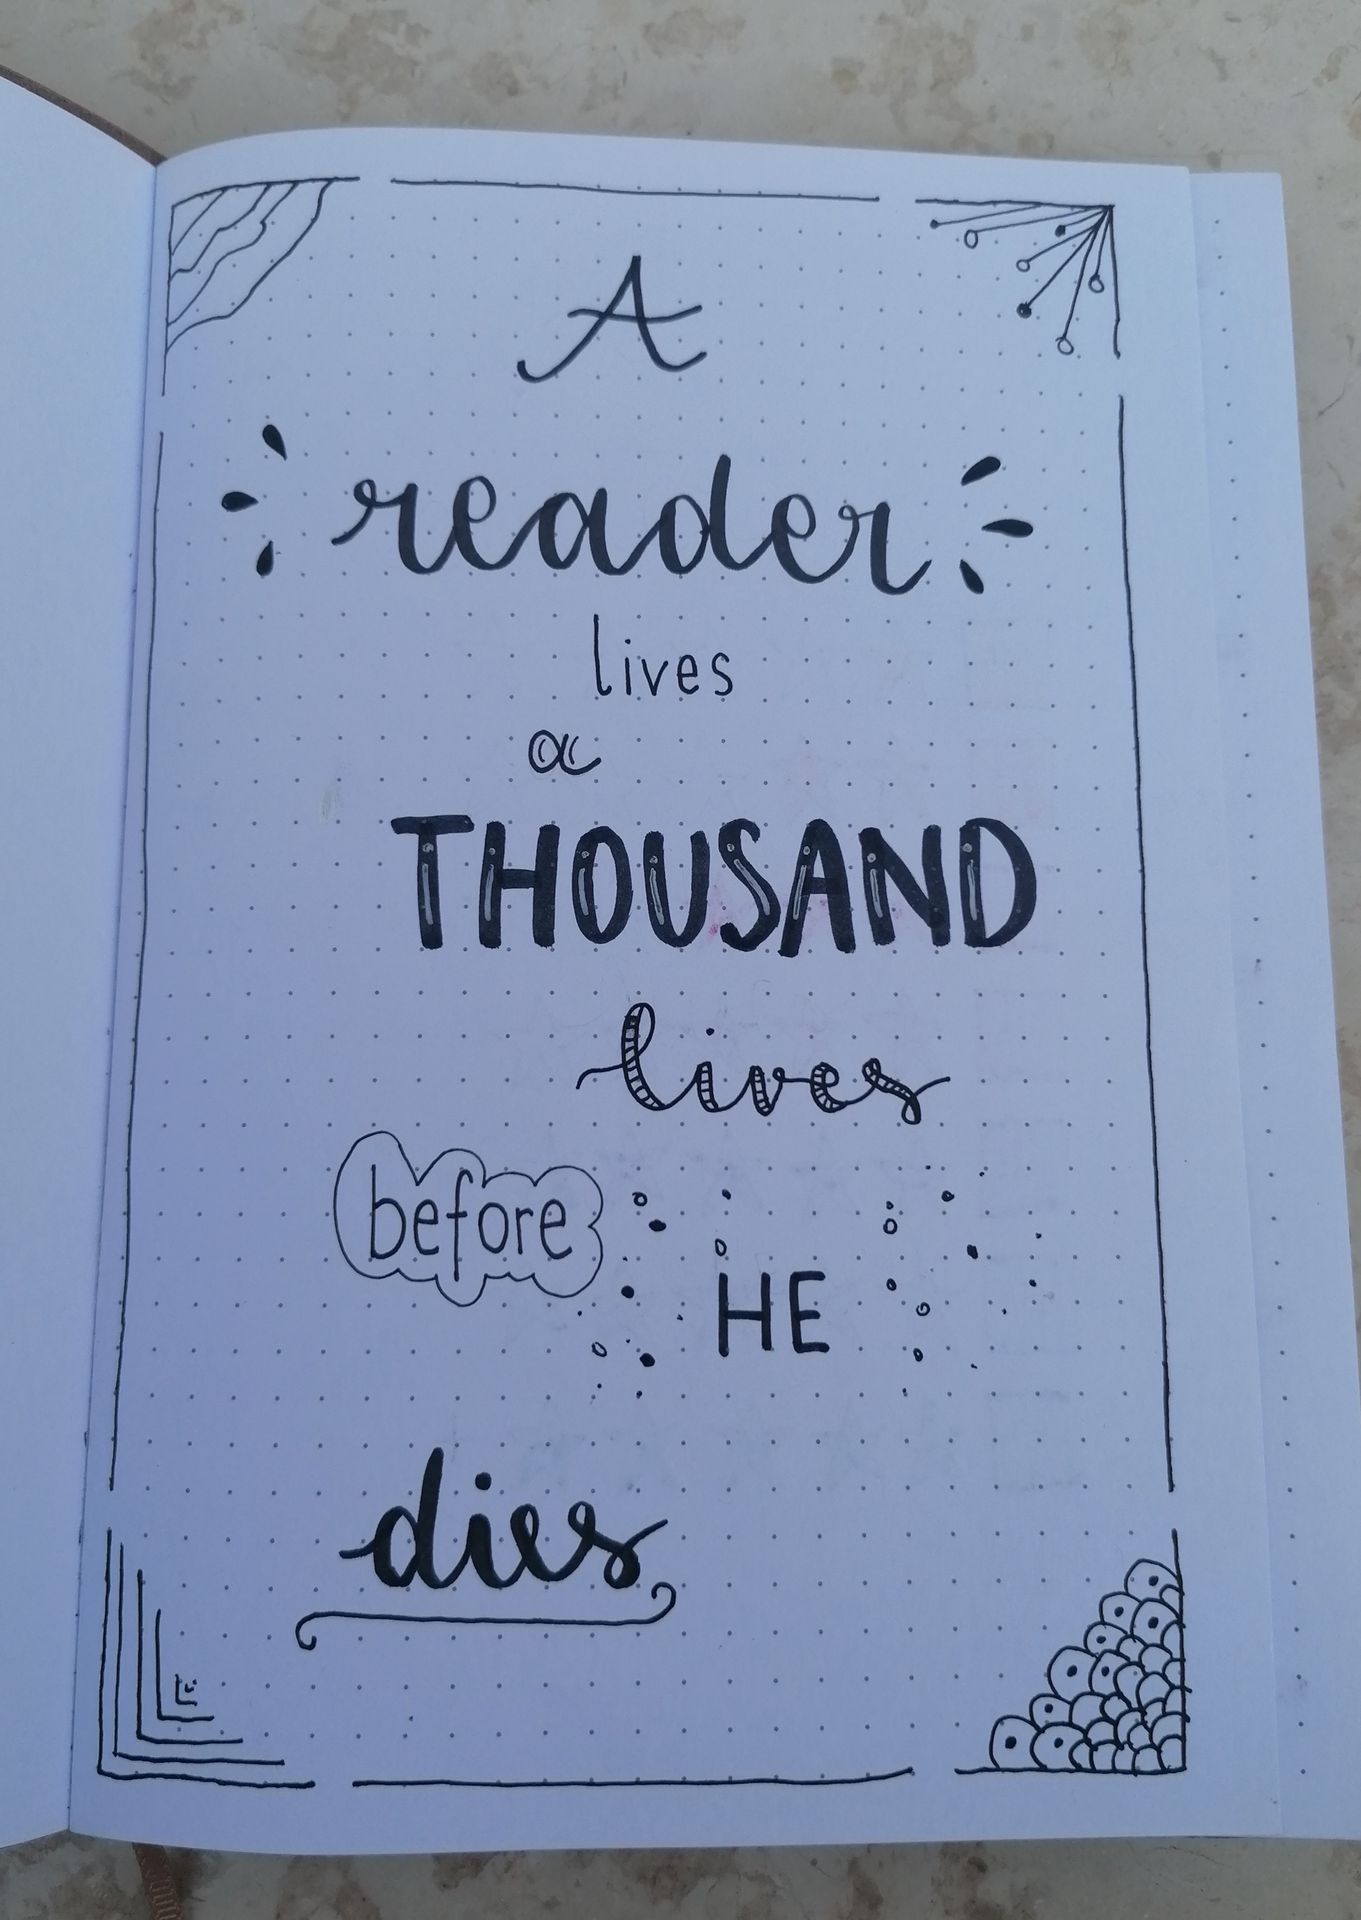 A
reader
lives
a
THOUSAND
lives
before
HE
dies